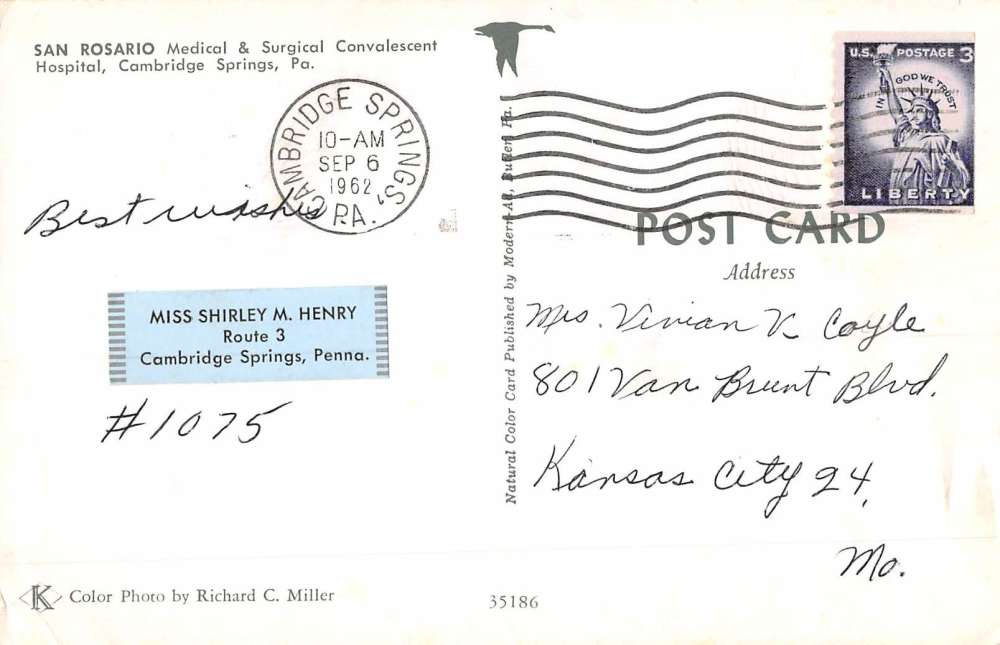 SAN ROSARIO Medical & Surgical Convalescent
Hospital, Cambridge Springs, Pa.
CAMBRIDGE SPRINGS, PA.
10-AM
SEP 6
1962
U.S. POSTAGE 3
IN GOD WE TRUST
LIBERTY
Best wishes
MISS SHIRLEY M. HENRY
Route 3
Cambridge Springs, Penna.
#1075
Natural Color Card Published by Modern-Ad, Butler, Pa.
POST CARD
Address
Mrs. Vivian V. Coyle
801 Van Brunt Blvd.
Kansas City 24,
Mo.
K Color Photo by Richard C. Miller
35186